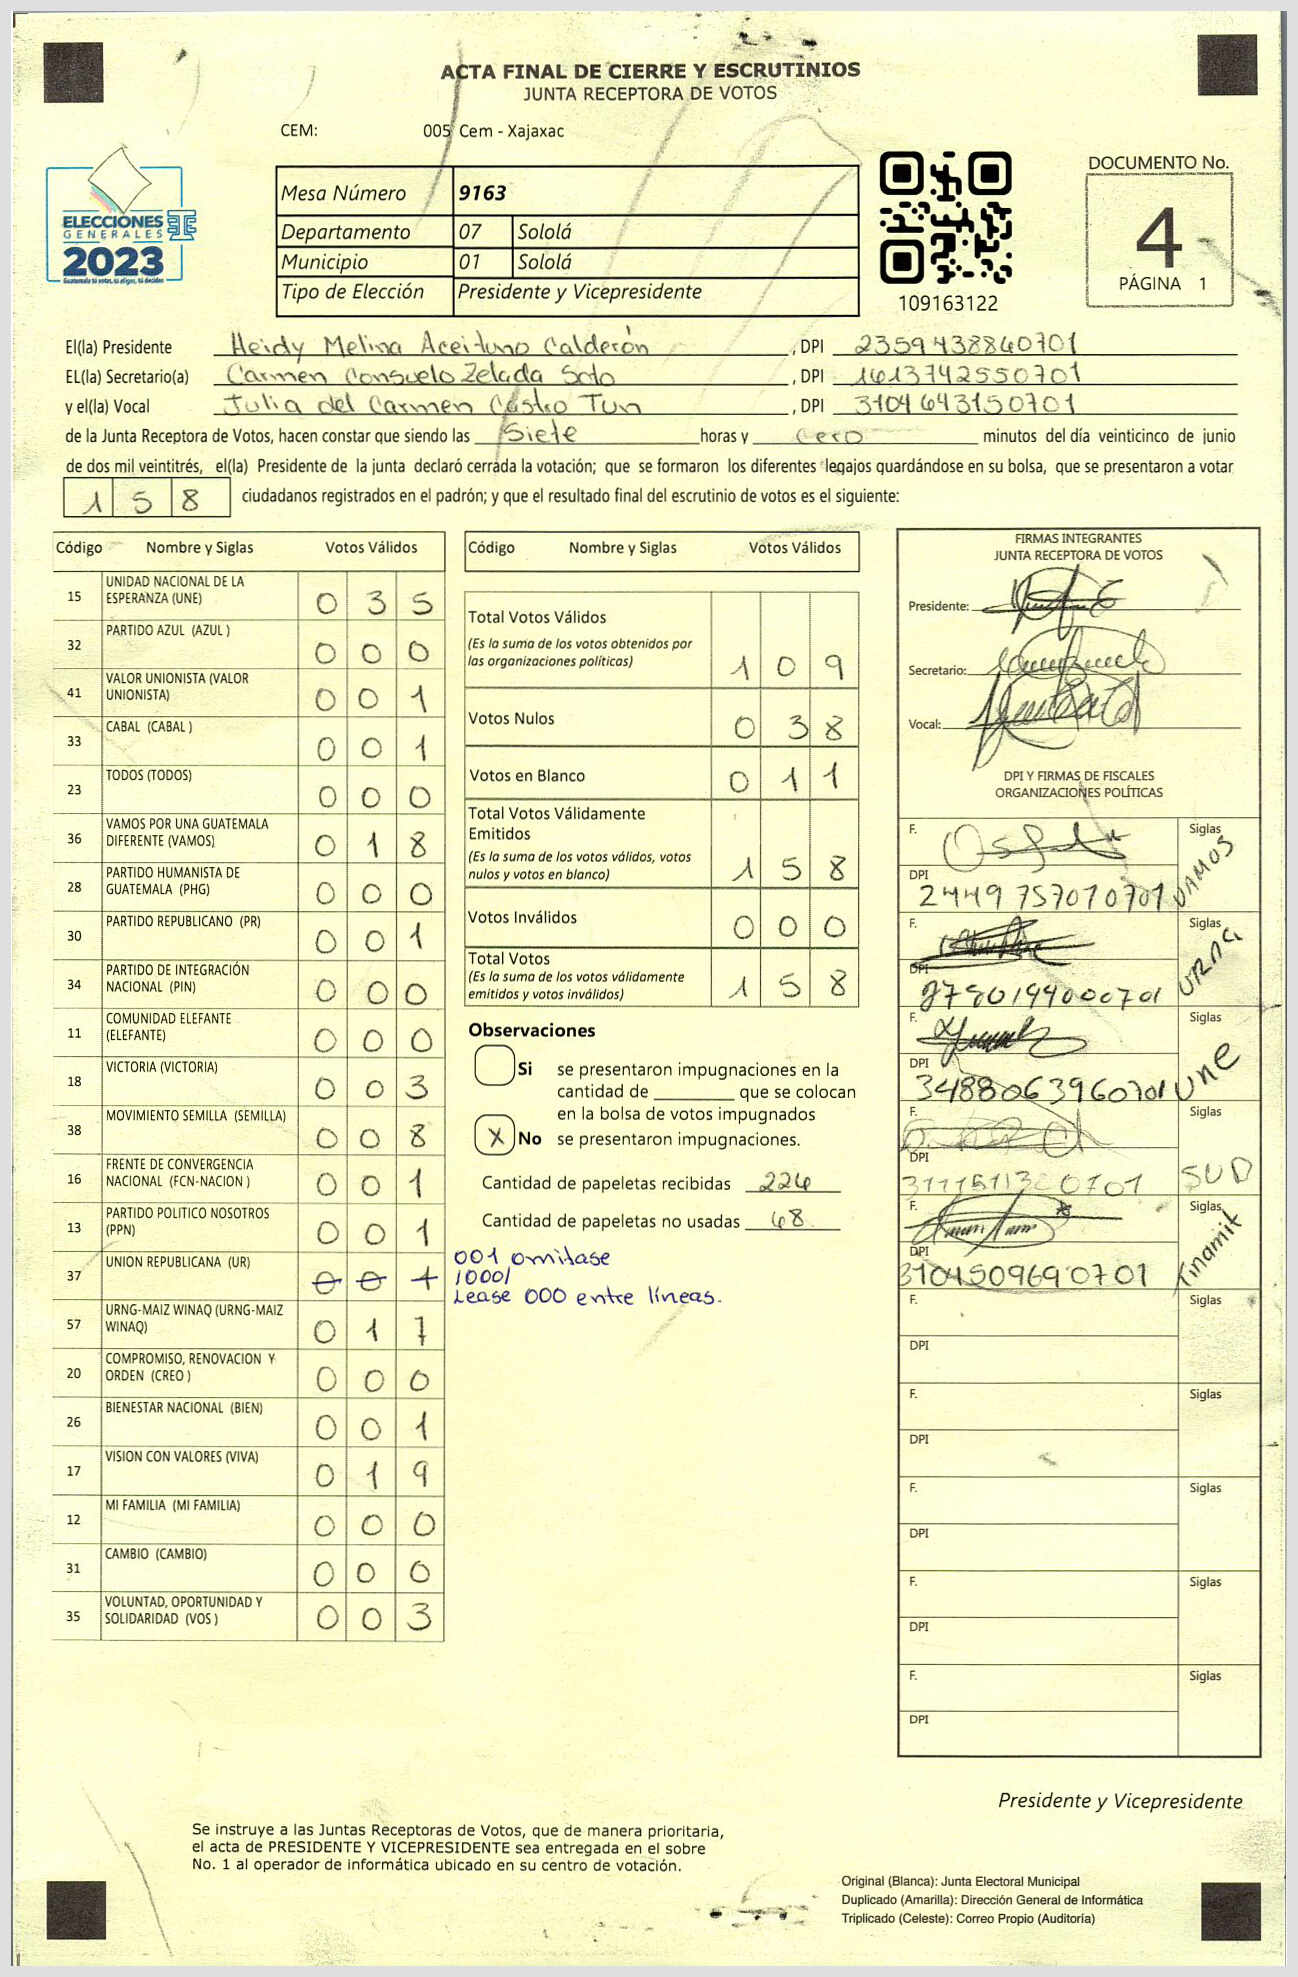 ACTA FINAL DE CIERRE Y ESCRUTINIOS
JUNTA RECEPTORA DE VOTOS
CEM: 005 Cem - Xajaxac
ELECCIONES
GENERALES
2023
Guatemala tú votas, tú eliges, tú decides
Mesa Número 9163
Departamento 07 Sololá
Municipio 01 Sololá
Tipo de Elección Presidente y Vicepresidente
109163122
DOCUMENTO No.
4
PÁGINA 1
El(la) Presidente Heidy Melina Aceituno Calderón , DPI 2359438840701
EL(la) Secretario(a) Carmen Consuelo Zelada Soto , DPI 1613742550701
y el(la) Vocal Julia del Carmen Castro Tun , DPI 3104643150701
de la Junta Receptora de Votos, hacen constar que siendo las Siete horas y cero minutos del día veinticinco de junio
de dos mil veintitrés, el(la) Presidente de la junta declaró cerrada la votación; que se formaron los diferentes legajos guardándose en su bolsa, que se presentaron a votar
1 5 8 ciudadanos registrados en el padrón; y que el resultado final del escrutinio de votos es el siguiente:
Código Nombre y Siglas Votos Válidos
15 UNIDAD NACIONAL DE LA ESPERANZA (UNE) 0 3 5
32 PARTIDO AZUL (AZUL ) 0 0 0
41 VALOR UNIONISTA (VALOR UNIONISTA) 0 0 1
33 CABAL (CABAL ) 0 0 1
23 TODOS (TODOS) 0 0 0
36 VAMOS POR UNA GUATEMALA DIFERENTE (VAMOS) 0 1 8
28 PARTIDO HUMANISTA DE GUATEMALA (PHG) 0 0 0
30 PARTIDO REPUBLICANO (PR) 0 0 1
34 PARTIDO DE INTEGRACIÓN NACIONAL (PIN) 0 0 0
11 COMUNIDAD ELEFANTE (ELEFANTE) 0 0 0
18 VICTORIA (VICTORIA) 0 0 3
38 MOVIMIENTO SEMILLA (SEMILLA) 0 0 8
16 FRENTE DE CONVERGENCIA NACIONAL (FCN-NACION ) 0 0 1
13 PARTIDO POLITICO NOSOTROS (PPN) 0 0 1
37 UNION REPUBLICANA (UR) 0 0 1
57 URNG-MAIZ WINAQ (URNG-MAIZ WINAQ) 0 1 7
20 COMPROMISO, RENOVACION Y ORDEN (CREO ) 0 0 0
26 BIENESTAR NACIONAL (BIEN) 0 0 1
17 VISION CON VALORES (VIVA) 0 1 9
12 MI FAMILIA (MI FAMILIA) 0 0 0
31 CAMBIO (CAMBIO) 0 0 0
35 VOLUNTAD, OPORTUNIDAD Y SOLIDARIDAD (VOS ) 0 0 3
Código Nombre y Siglas Votos Válidos
Total Votos Válidos
(Es la suma de los votos obtenidos por
las organizaciones políticas) 1 0 9
Votos Nulos 0 3 8
Votos en Blanco 0 1 1
Total Votos Válidamente
Emitidos
(Es la suma de los votos válidos, votos
nulos y votos en blanco) 1 5 8
Votos Inválidos 0 0 0
Total Votos
(Es la suma de los votos válidamente
emitidos y votos inválidos) 1 5 8
Observaciones
Si se presentaron impugnaciones en la
cantidad de ________ que se colocan
en la bolsa de votos impugnados
X No se presentaron impugnaciones.
Cantidad de papeletas recibidas 226
Cantidad de papeletas no usadas 68
001 omitase
10001
Lease 000 entre líneas.
FIRMAS INTEGRANTES
JUNTA RECEPTORA DE VOTOS
Presidente:
Secretario:
Vocal:
DPI Y FIRMAS DE FISCALES
ORGANIZACIONES POLÍTICAS
F. Siglas VAMOS
DPI 2449 757070701
F. Siglas URNG
DPI
F. Siglas Une
DPI 3488063960701
F. Siglas SUD
DPI
F. Siglas Tinamit
DPI 3104509690701
F. Siglas
DPI
F. Siglas
DPI
F. Siglas
DPI
F. Siglas
DPI
F. Siglas
DPI
Presidente y Vicepresidente
Se instruye a las Juntas Receptoras de Votos, que de manera prioritaria,
el acta de PRESIDENTE Y VICEPRESIDENTE sea entregada en el sobre
No. 1 al operador de informática ubicado en su centro de votación.
Original (Blanca): Junta Electoral Municipal
Duplicado (Amarilla): Dirección General de Informática
Triplicado (Celeste): Correo Propio (Auditoría)